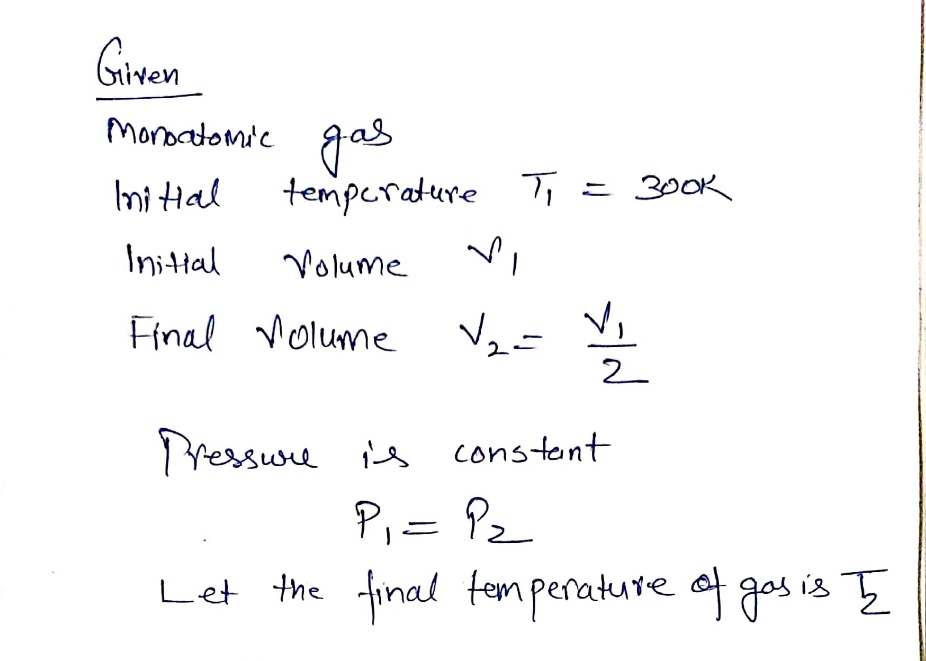 Given
Monoatomic gas
Initial temperature T₁ = 300K
Initial Volume V₁
Final Volume V₂ = V₁/2
Pressure is constant
P₁ = P₂
Let the final temperature of gas is T₂